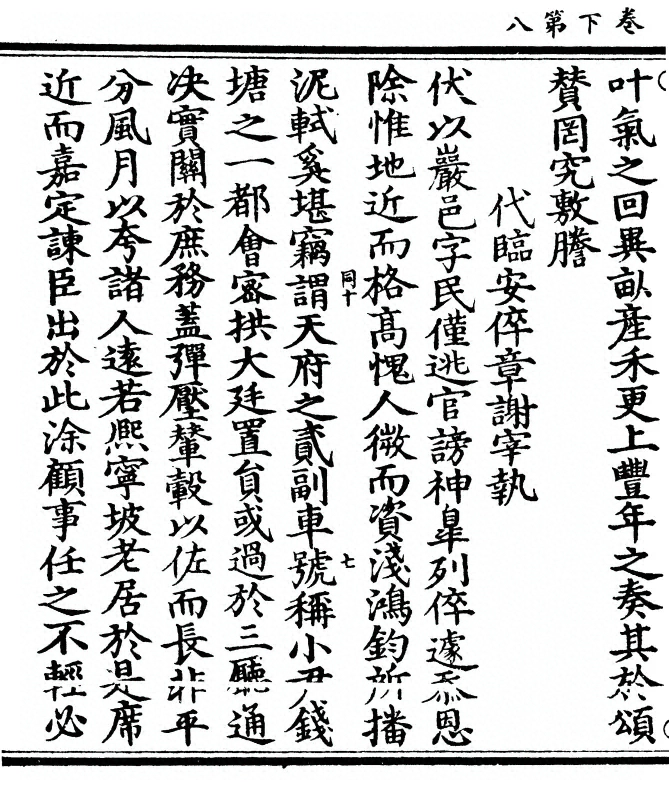 卷下第八
叶氣之回異畝產禾更上豐年之奏其於頌
賛罔究敷謄
代臨安倅章謝宰執
伏以巖邑字民僅逃官謗神臯列倅遽忝恩
除惟地近而格高愧人微而資淺鴻鈞所播
同十
七
泥軾奚堪竊謂天府之貳副車號稱小尹錢
塘之一都會密拱大廷置貟或過於三廳通
决實關於庶務蓋彈壓輦轂以佐而長非平
分風月以夸諸人遠若熈寧坡老居於是席
近而嘉定諫臣出於此涂顧事任之不輕必